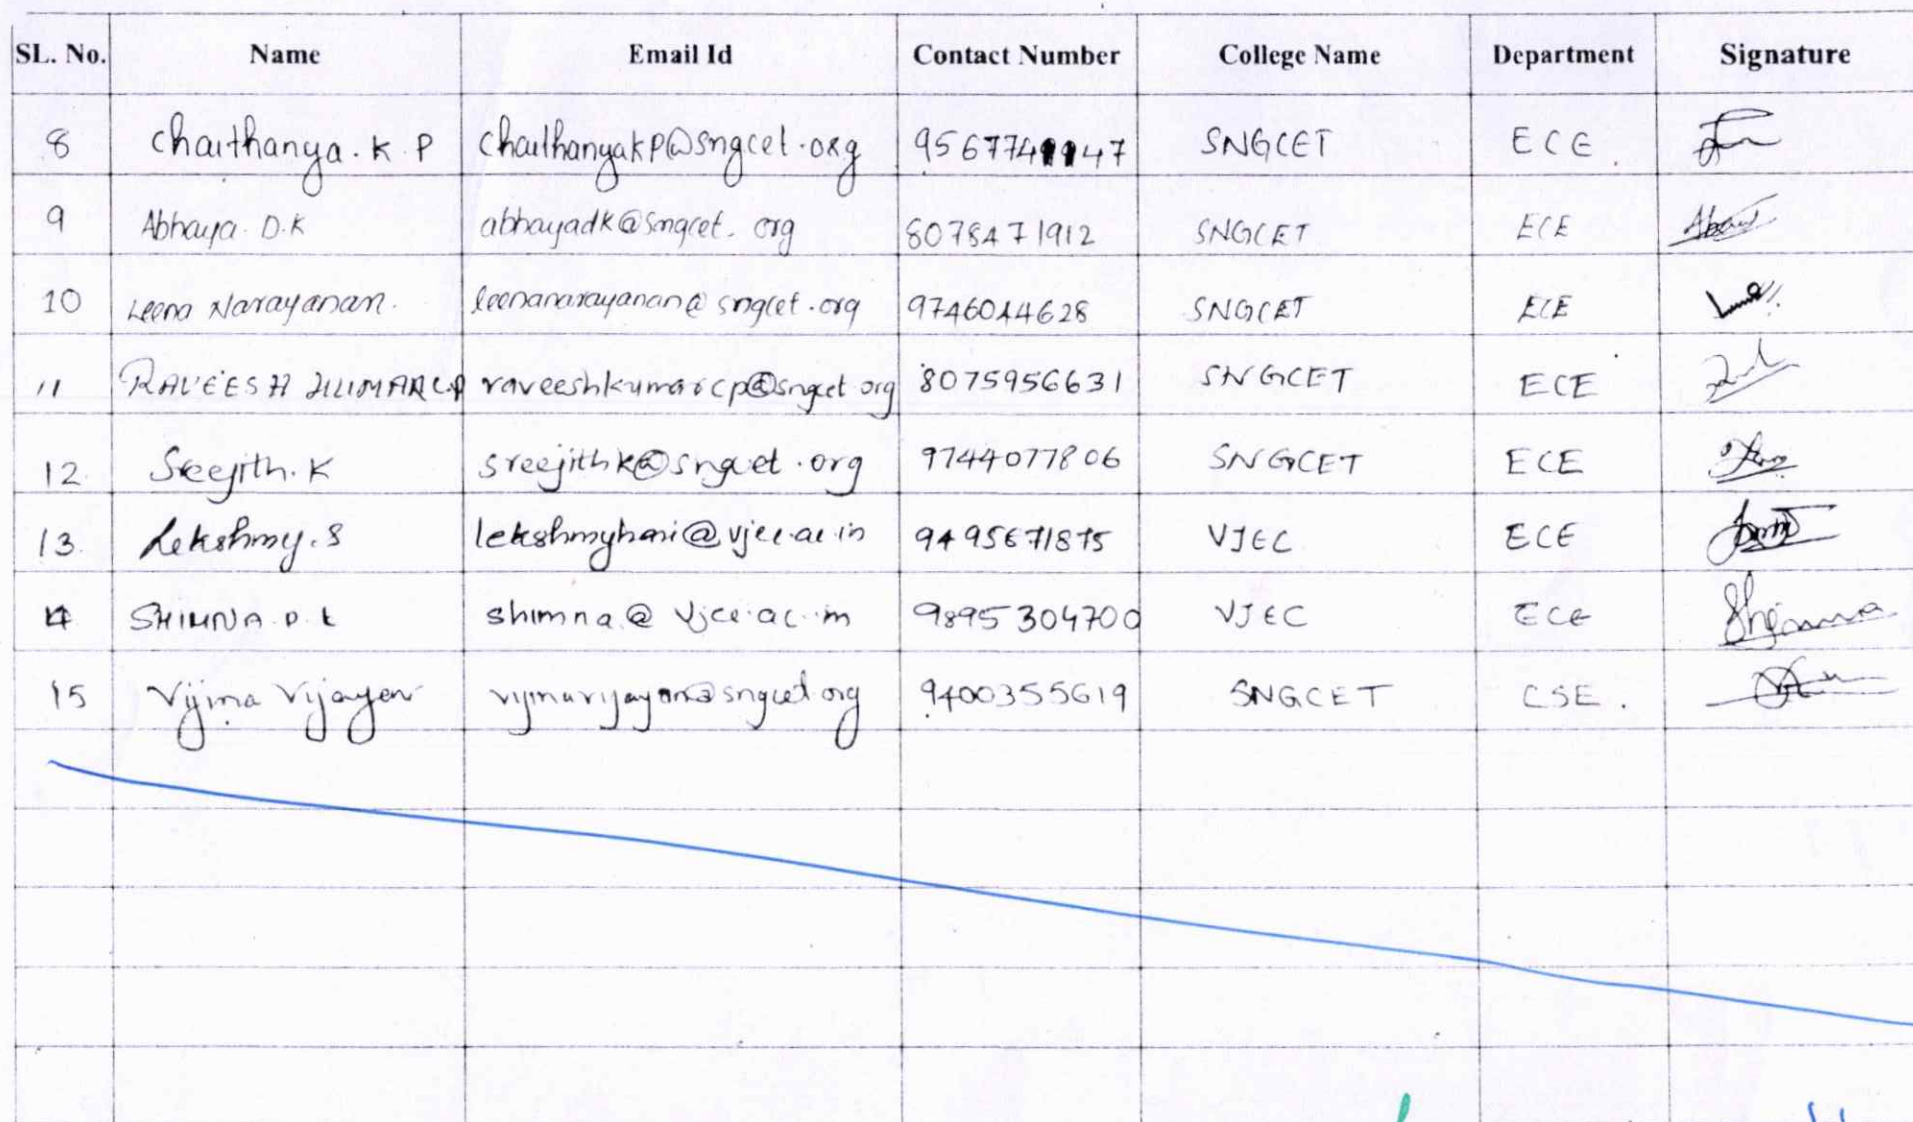 SL. No. Name Email Id Contact Number College Name Department Signature
8 Chaithanya. K. P chaithanyakp@sngcet.org SNGCET ECE.
9 Abhaya. D.K abhayadk@sngcet.org 8078471912 SNGCET ECE
10 Leena Narayanan. leenanarayanan@sngcet.org 9746044628 SNGCET ECE
11 RAVEESH KUMAR C.P raveeshkumarcp@sngcet.org 8075956631 SNGCET ECE
12. Sreejith. K sreejithk@sngcet.org 9744077806 SNGCET ECE
13. Lekshmy. S lekshmyhari@vjec.ac.in 9495671875 VJEC ECE
14 SHIMNA P. K shimna@vjec.ac.in 9895304700 VJEC ECE Shimna
15 Vijina Vijayan vijinavijayan@sngcet.org 9400355619 SNGCET CSE.